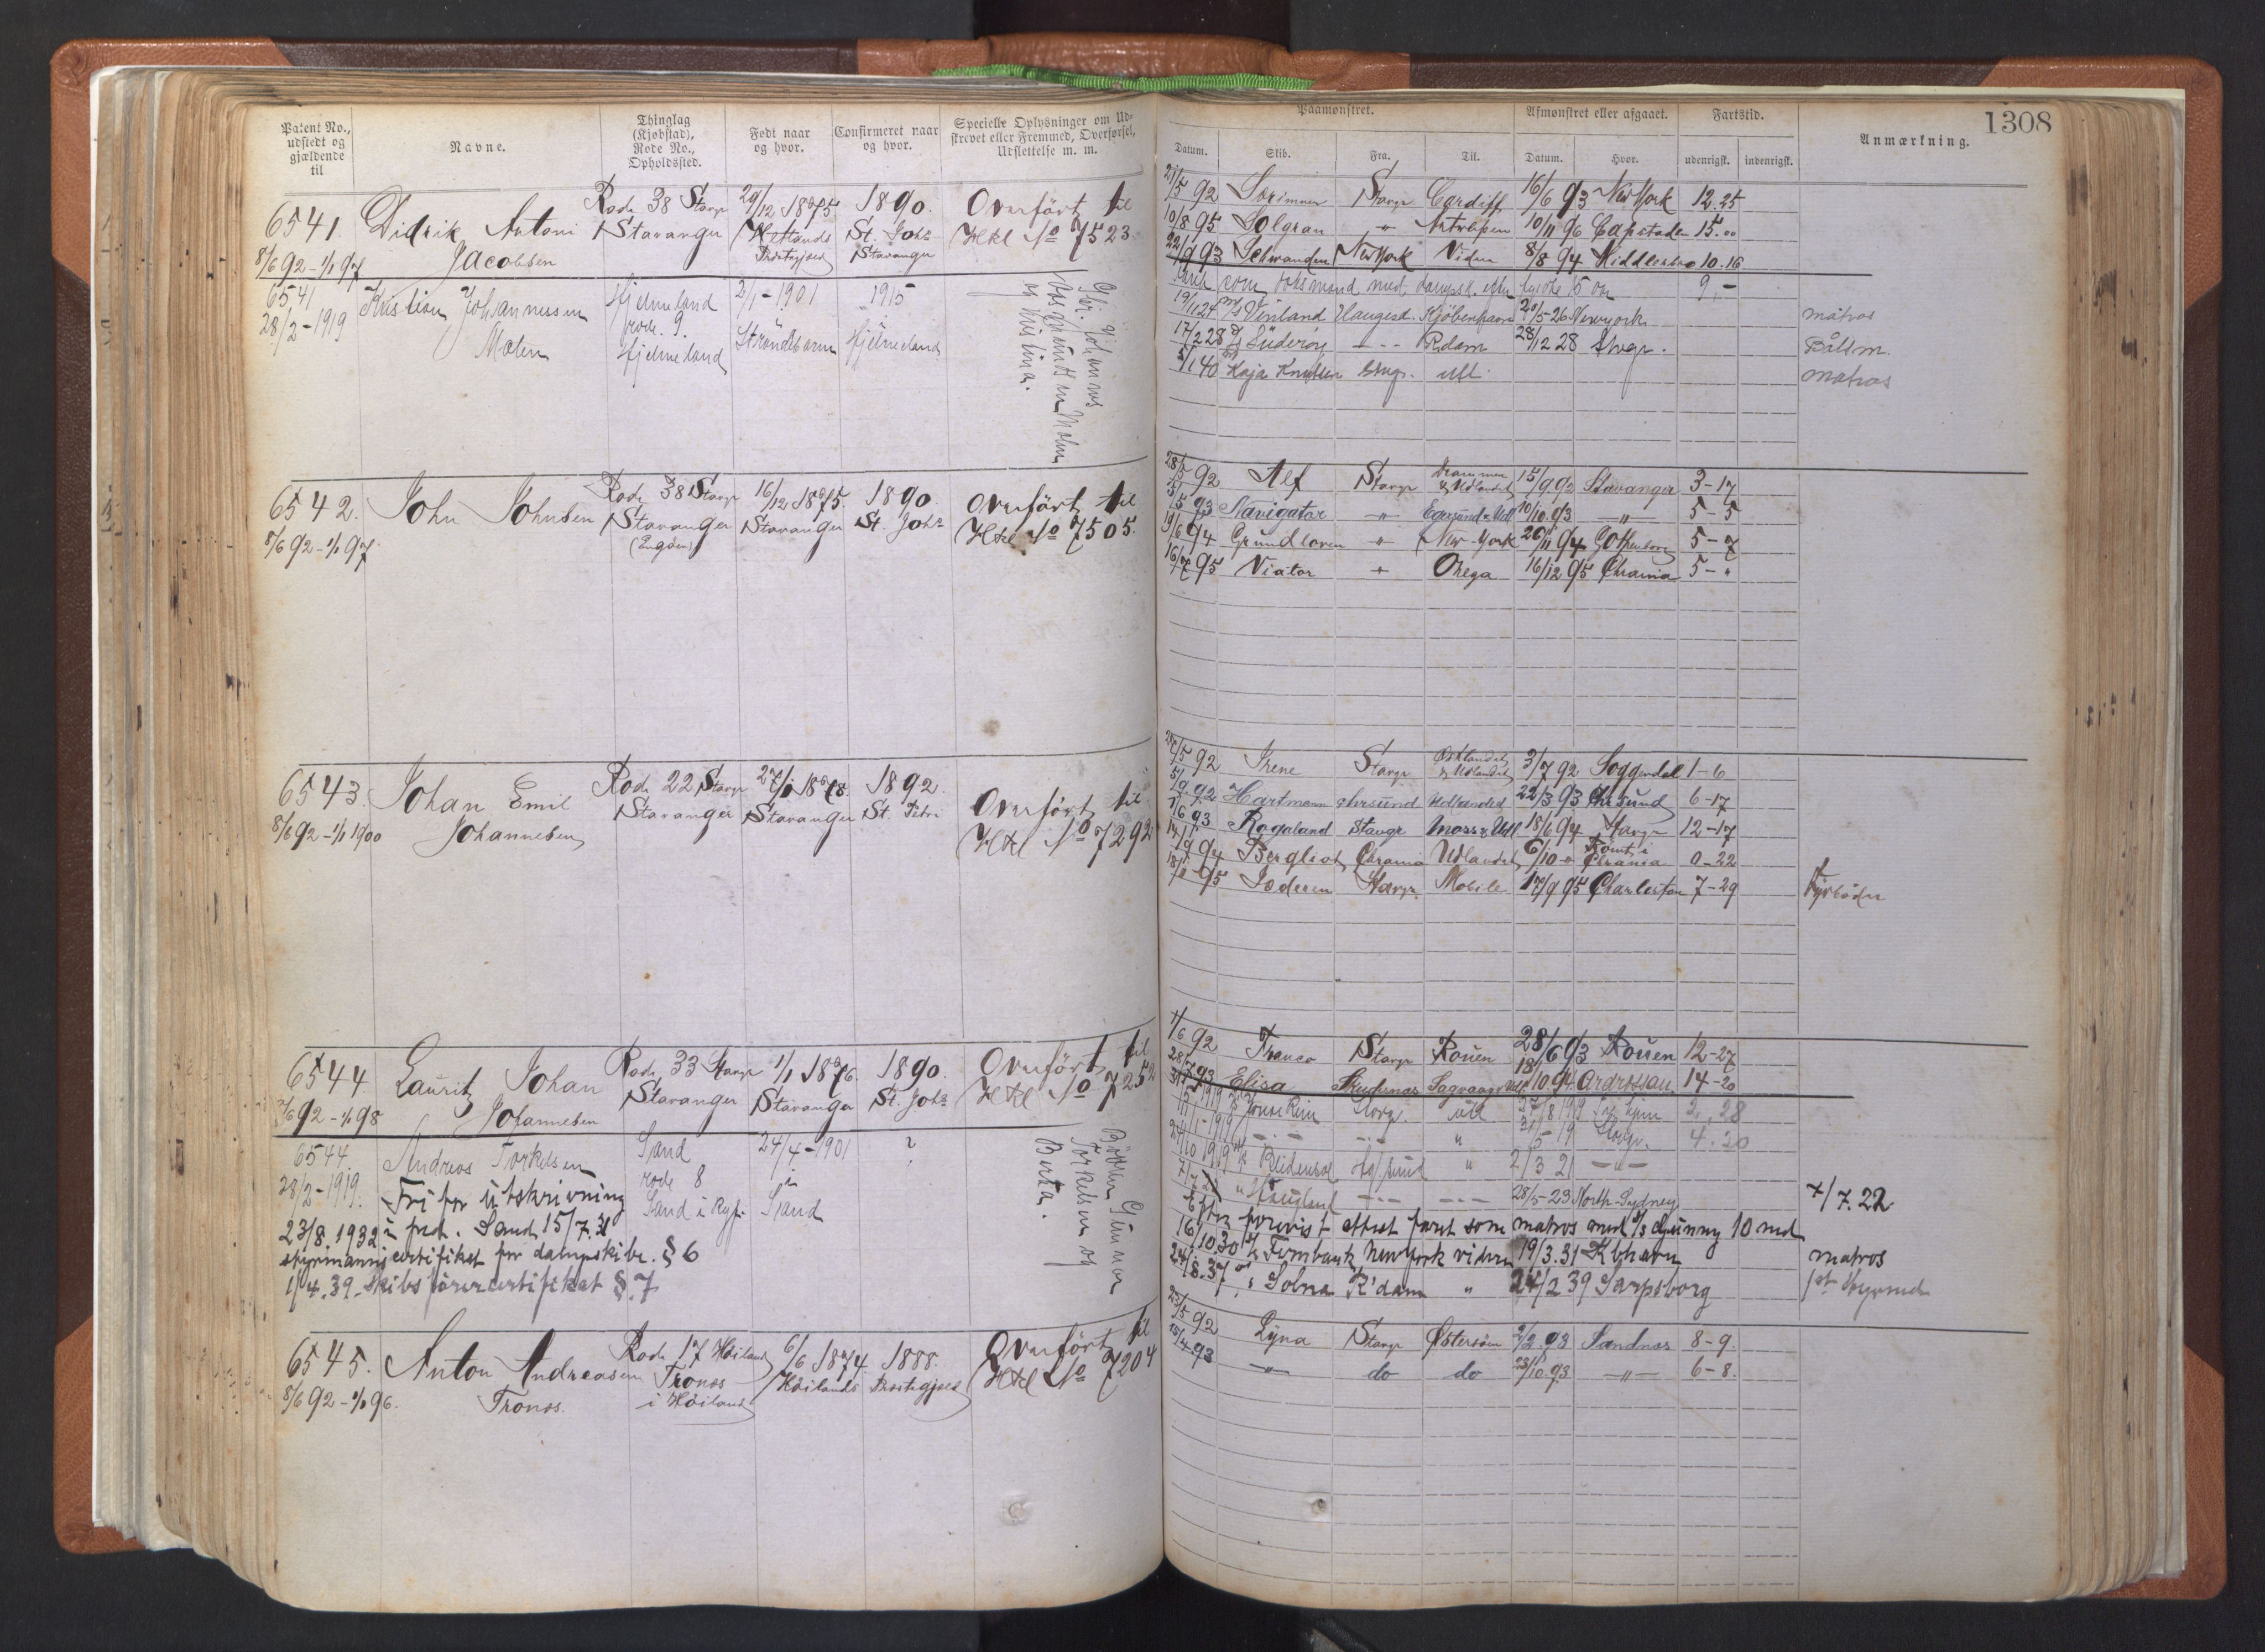 Patent No., udstedt og gjældende til
Navne.
Thinglag (Kjøbstad), Rode No., Opholdssted.
Født naar og hvor.
Confirmeret naar og hvor.
Specielle Oplysninger om Udskrevet eller Fremmed, Overførsel, Udslettelse m. m.
Paamønstret.
Afmønstret eller afgaaet.
Fartstid.
Anmærkning.
1308
Datum.
Skib.
Fra.
Til.
Datum.
Hvor.
udenrigsk.
indenrigsk.
6541. Didrik Antoni Jacobsen
8/6 92 - 1/1 97
Rode 38 Stavgr Stavanger
29/12 1875 Hetlands Præstegjæld
1890. St. Johs Stavanger
Overført til Hkl No 7523
21/5 92 Stavgr Cardiff 16/6 93 New York 12.25
10/8 95 Solgran " Antwerpen 10/11 96 Capstaden 15.00
22/9 93 New York Viden 8/8 94 Middlesbro 10.16
6541 Kristian Johannessen Molen
28/2-1919
Hjelmeland rode. 9. Hjelmeland
2/1-1901 Strandbarm
1915 Hjelmeland
9,-
19/11 24 M/S Vinland Haugesd. Kjöbenhavn 20/5-26 Newyork matros
17/2 28 Süderöy - - - Rdam 28/12 28 Stvgr. Båtsm.
5/1 40 Kaja Knutsen Stvgr. utl. matros
6542. John Johnsen
8/6 92 - 1/1 97
Rode 38 Stavgr Stavanger (Engöen)
16/12 1875. Stavanger
1890. St. Johs
Overført til Hkl No 7505.
28/5 92 Alf Stavgr Drammen & Udlandet 15/9 92 Stavanger 3-17
5/5 93 Navigator -"- Egersund & Udl 10/10 93 -"- 5-5
19/6 94 Grundloven " New-York 26/11 94 Gothenborg 5-7
16/7 95 Viator " Onega 16/12 95 Chrania 5-"
6543. Johan Emil Johannesen
8/6 92 - 1/1 1900
Rode 22 Stavgr Stavanger
27/1 1878 Stavanger
1892. St. Petri
Overført til Hkl No 7292
28/5 92 Irene Stavgr Østlandet & Udlandet 3/7 92 Soggendal 1-6
5/9 92 Hartmann Chrsund Udlandet 22/3 93 Chrsund 6-17
7/6 93 Rogaland Stavgr Moss & Udl 18/6 94 Stavgr 12-17
14/9 94 Bergliot Chrania Udlandet 6/10 " Rømt i Chrania 0-22
18/1 95 Jæderen Stavgr Mobile 17/9 95 Charleston 7-29 Fyrbøder
6544 Laurits Johan Johannesen
8/6 92 - 1/1 98
Rode 33 Stavgr Stavanger
1/1 1876. Stavanger
1890. St. Johs
Overført til Hkl No 7252
1/6 92 Stavgr Rouen 28/6 93 Rouen 12-27
28/7 93 Elisa Skudesnæs Sagvaag & Udl 18/10 94 Ardrossan. 14-20
6544. Andreas Torkelsen
28/2-1919.
Sand rode 8 Sand i Ryf.
24/4-1901 i Sand
?
Börsen Gunnar Torkelsen og Berta.
Fri for utskrivning i fred. Sand 15/7.31
23/8 1932 styrmannscertifikat for dampskibe. § 6
1/4.39. Skibsførercertifikat § 7
Stvgr. utl. 27/8 1919 2, 28
31/5-19 Stvgr. 4.20
24/10 1919 " 2/3 21 -"-
7/7 21 " Haugland - - - 28/5-23 North-Sydney 7/7.22
Efter forevist attest faret som matros med S/S Gunny 10 md
16/10 30 S/S Fernbank New York viden 19/3.31 Kbhavn matros
24/8.37 Solna R'dam " 24/2 39 Sarpsborg 1st Styrmd
6545. Anton Andreasen Tronæs.
8/6 92 - 1/1 96.
Rode 17 Høiland Tronæs i Høiland
6/6 1874. Høilands
1888. Præstegjæld
Overført til Hkl No 7204
23/5 92 Lyna Stavgr Østersøen 9/2 93 Sandnæs 8-9.
15/4 93 -"- do do 23/10 93 -"- 6-8.